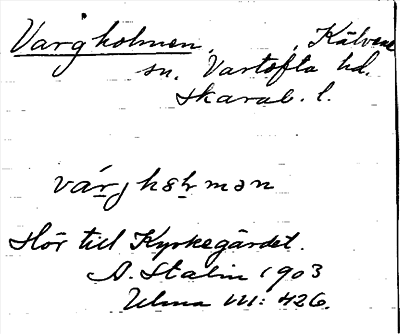 Vargholmen. , Kälvene
sn. Vartofta hd.
Skarab. l.
Hör till Kyrkegärdet.
A. Stalin 1903
Ulma VII: 426.